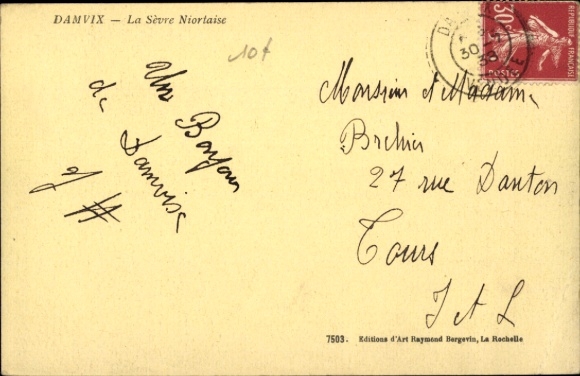 DAMVIX — La Sèvre Niortaise
10f
Un Bonjour
de Damvix
30c
REPUBLIQUE FRANÇAISE
POSTES
30
38
Monsieur et Madame
Brehier
27 rue Danton
Tours
I et L
7503. Editions d'Art Raymond Bergevin, La Rochelle